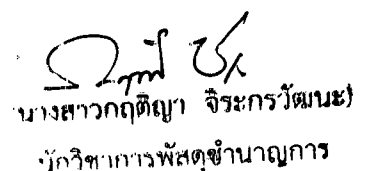 นางสาวกฤติญา จิระกรวัฒนะ)
นักวิชาการพัสดุชำนาญการ